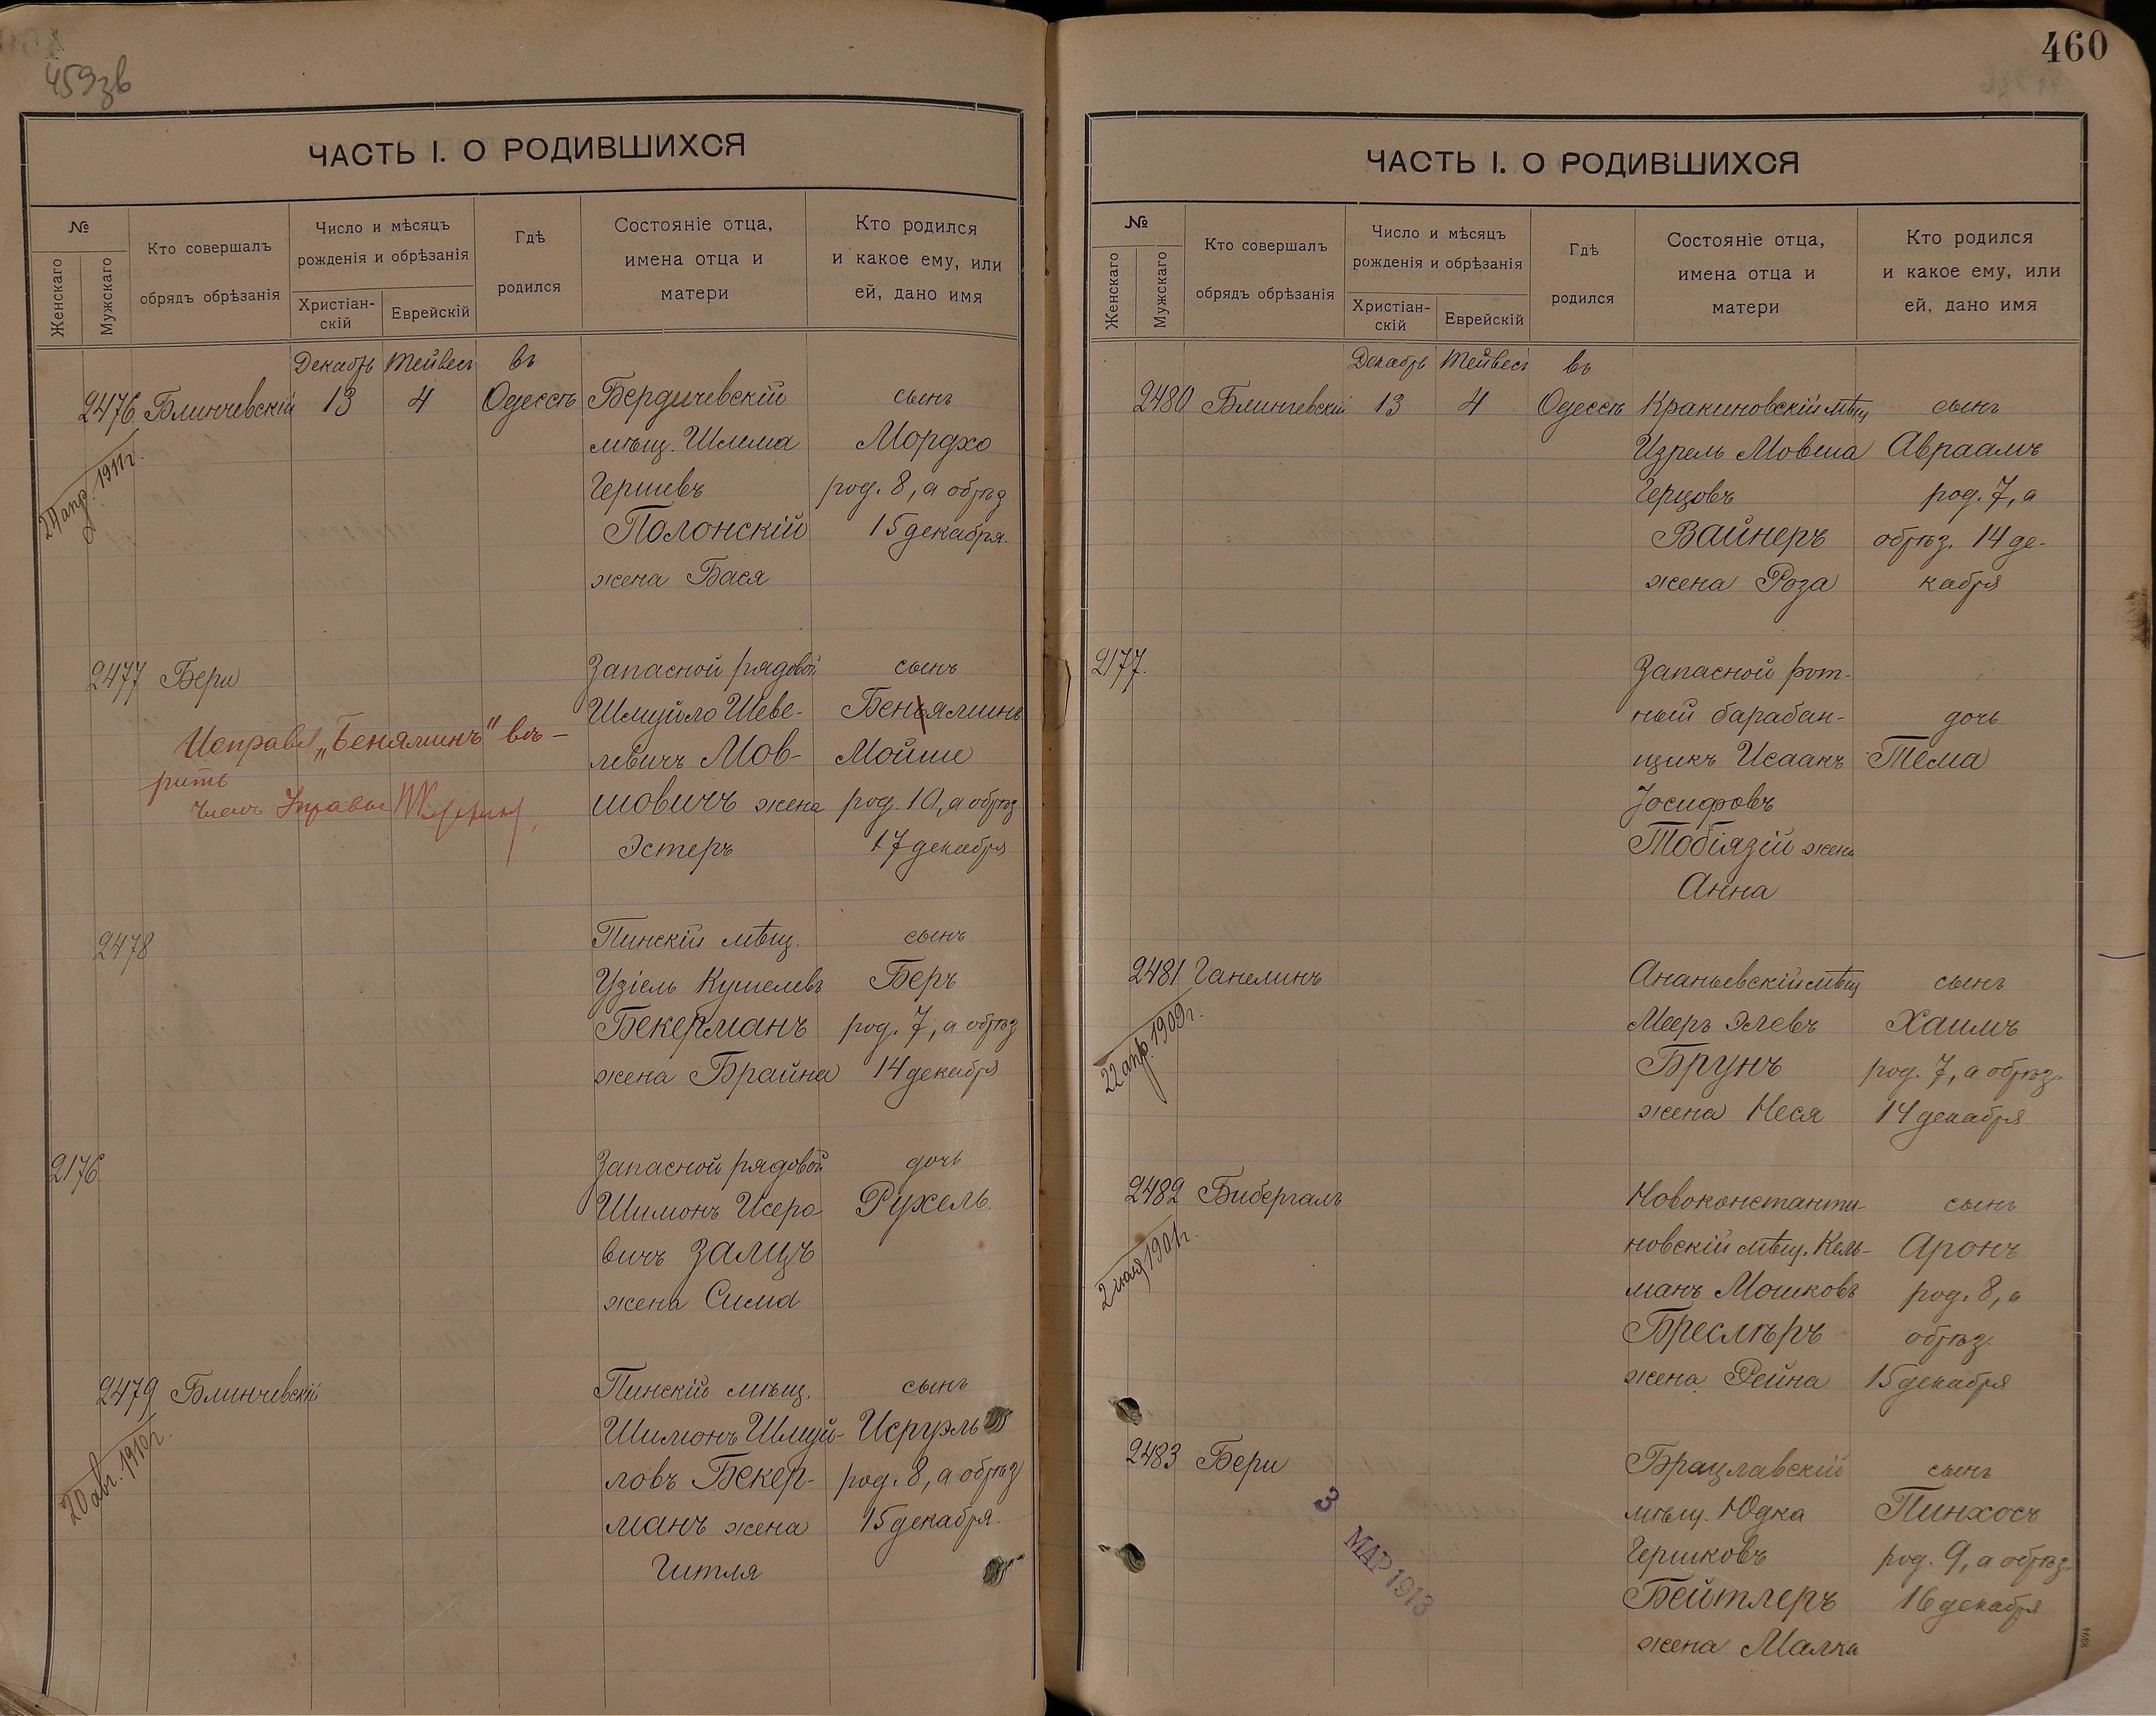 459зв
ЧАСТЬ I. О РОДИВШИХСЯ
№
Женскаго
Мужскаго
Кто совершалъ
обрядъ обрѣзанія
Число и мѣсяцъ
рожденія и обрѣзанія
Христіан-
скій
Еврейскій
Гдѣ
родился
Состояніе отца,
имена отца и
матери
Кто родился
и какое ему, или
ей, дано имя
Декабрь Тейвесъ въ
2476 Блинчевскій 13 4 Одессѣ Бердичевскій сынъ
мѣщ. Шлема Мордхо
Гершевъ род. 8, а обрѣз
Полонскій 15 декабря.
жена Бася
24 апр. 1911 г.
2477 Бери Запасной рядовой сынъ
Шмуйло Шеве- Беньяминъ
левичъ Мов- Мойше
шовичъ жена род. 10, а обрѣз
Эстеръ 17 декабря
Исправл. „Беняминъ" вѣ-
рить
Членъ Управы
2478 Пинскій мѣщ. сынъ
Узіель Кушелевъ Беръ
Бекерманъ род. 7, а обрѣз
жена Брайна 14 декабря
2176 Запасной рядовой дочь
Шимонъ Исеро- Рухель
вичъ Залцъ
жена Сима
2479 Блинчевскій Пинскій мѣщ. сынъ
Шимонъ Шмуй- Исруэль
ловъ Бекер- род. 8, а обрѣз
манъ жена 15 декабря.
Гитля
20 авг. 1910 г.
460
ЧАСТЬ I. О РОДИВШИХСЯ
№
Женскаго
Мужскаго
Кто совершалъ
обрядъ обрѣзанія
Число и мѣсяцъ
рожденія и обрѣзанія
Христіан-
скій
Еврейскій
Гдѣ
родился
Состояніе отца,
имена отца и
матери
Кто родился
и какое ему, или
ей, дано имя
Декабрь Тейвесъ въ
2480 Блинчевскій 13 4 Одессѣ Кракиновскій мѣщ сынъ
Изрель Мовша Авраамъ
Герцовъ род. 7, а
Вайнеръ обрѣз. 14 де-
жена Роза кабря
2177. Запасной рот-
ный барабан- дочь
щикъ Исаакъ Тема
Іосифовъ
Тобіязій жена
Анна
2481 Ганелинъ Ананьевскій мѣщ сынъ
Мееръ Элевъ Хаимъ
Брунъ род. 7, а обрѣз.
жена Неся 14 декабря
22 апр. 1909 г.
2482 Бибергалъ Новоконстанти- сынъ
новскій мѣщ. Кель- Аронъ
манъ Мошковъ род. 8, а
Бреслѣръ обрѣз.
жена Рейна 15 декабря
2 мая 1901 г.
2483 Бери Брацлавскій сынъ
мѣщ. Юдка Пинхосъ
Гершковъ род. 9, а обрѣз.
Бейтлеръ 16 декабря
жена Малка
3 МАР 1913